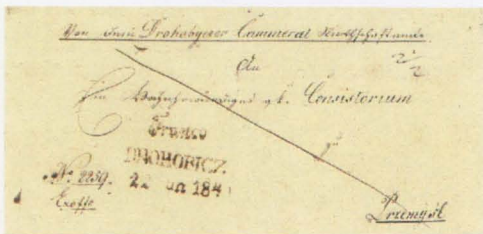 Von dem Drohobyczer Cammeral Wirthschaftsamte
An
Ein Hochwürdiges gk. Consistorium
Franco
DROHOBICZ.
22 184
No. 2259.
Exoffo
Przemyśl